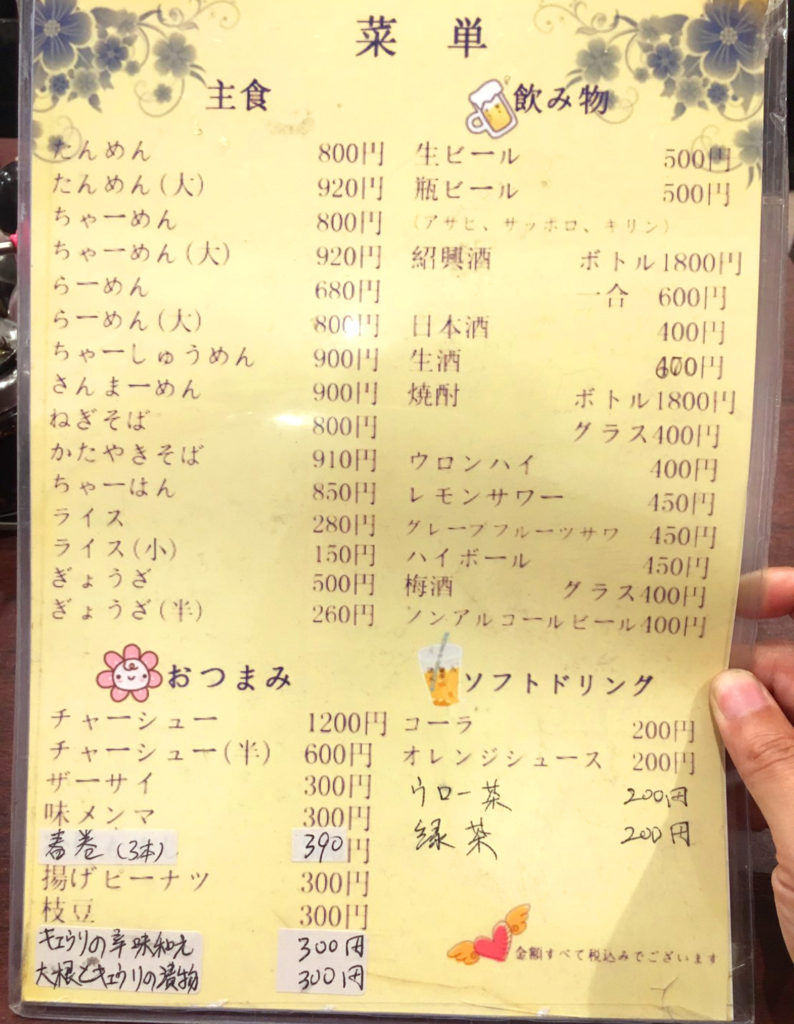 菜単
主食
たんめん 800円
たんめん(大) 920円
ちゃーめん 800円
ちゃーめん(大) 920円
らーめん 680円
らーめん(大) 800円
ちゃーしゅうめん 900円
さんまーめん 900円
ねぎそば 800円
かたやきそば 910円
ちゃーはん 850円
ライス 280円
ライス(小) 150円
ぎょうざ 500円
ぎょうざ(半) 260円
おつまみ
チャーシュー 1200円
チャーシュー(半) 600円
ザーサイ 300円
味メンマ 300円
春巻(3本) 390円
揚げピーナツ 300円
枝豆 300円
キュウリの辛味和え 300円
大根とキュウリの漬物 300円
飲み物
生ビール 500円
瓶ビール 500円
(アサヒ、サッポロ、キリン)
紹興酒 ボトル1800円
一合 600円
日本酒 400円
生酒 600円
焼酎 ボトル1800円
グラス400円
ウロンハイ 400円
レモンサワー 450円
グレープフルーツサワ 450円
ハイボール 450円
梅酒 グラス400円
ノンアルコールビール400円
ソフトドリング
コーラ 200円
オレンジシュース 200円
ウロー茶 200円
緑茶 200円
金額すべて税込みでございます